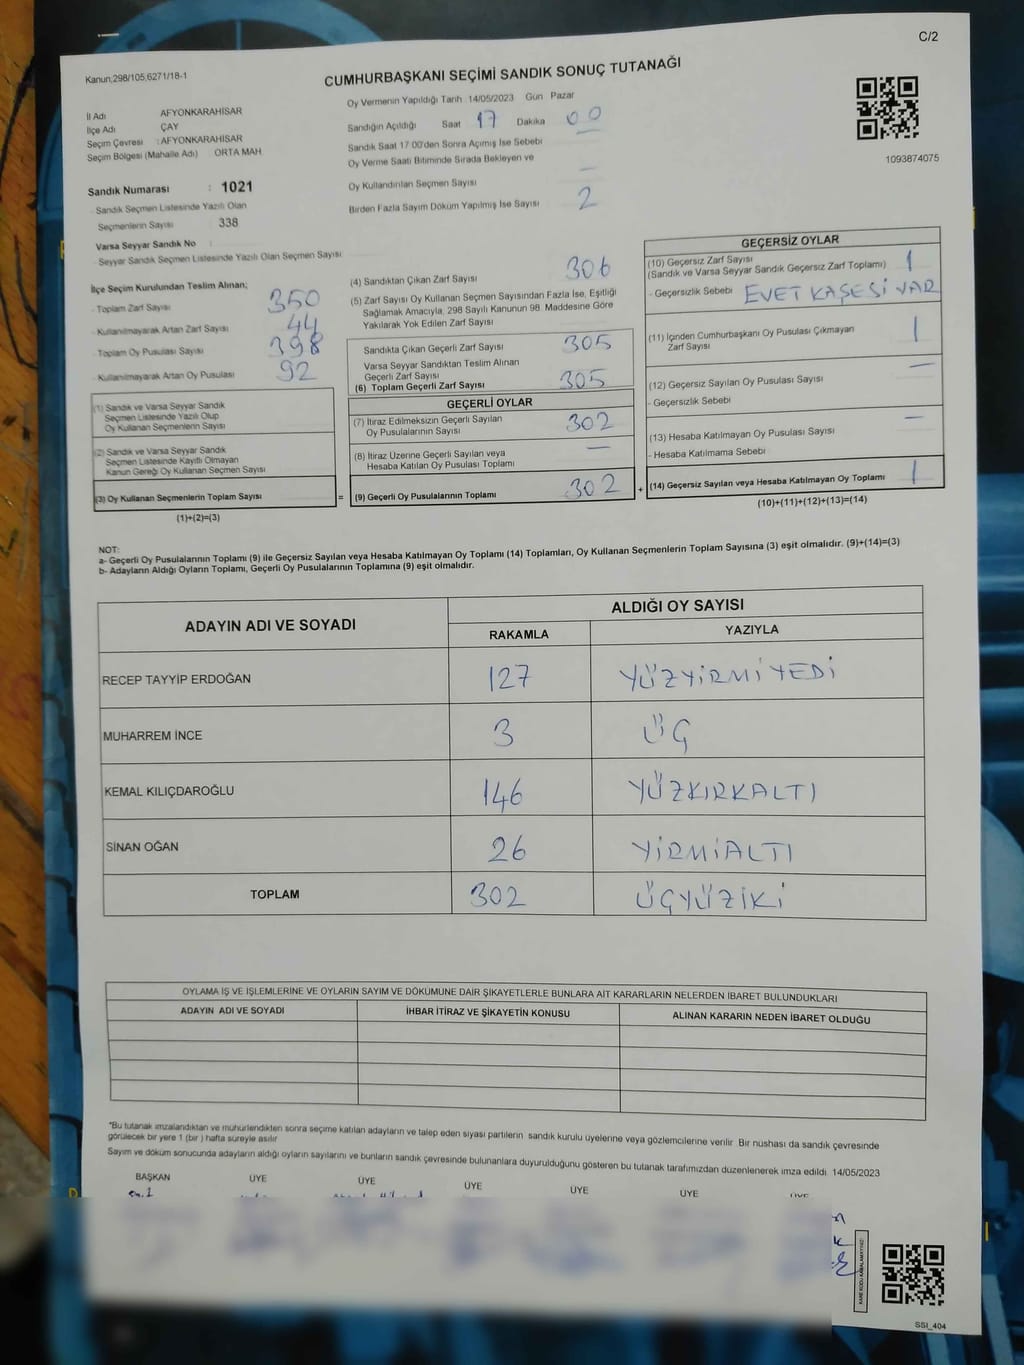 C/2
Kanun,298/105,6271/18-1
CUMHURBAŞKANI SEÇİMİ SANDIK SONUÇ TUTANAĞI
İl Adı AFYONKARAHİSAR
İlçe Adı ÇAY
Seçim Çevresi : AFYONKARAHİSAR
Seçim Bölgesi (Mahalle Adı) ORTA MAH.
Sandık Numarası : 1021
- Sandık Seçmen Listesinde Yazılı Olan
Seçmenlerin Sayısı 338
Varsa Seyyar Sandık No :
- Seyyar Sandık Seçmen Listesinde Yazılı Olan Seçmen Sayısı
Oy Vermenin Yapıldığı Tarih 14/05/2023 Gün Pazar
Sandığın Açıldığı Saat 17 Dakika 00
Sandık Saat 17 00'den Sonra Açımış İse Sebebi
Oy Verme Saati Bitiminde Sırada Bekleyen ve
Oy Kullandırılan Seçmen Sayısı —
Birden Fazla Sayım Döküm Yapılmış İse Sayısı 2
1093874075
İlçe Seçim Kurulundan Teslim Alınan;
- Toplam Zarf Sayısı 350
- Kullanılmayarak Artan Zarf Sayısı 44
- Toplam Oy Pusulası Sayısı 398
- Kullanılmayarak Artan Oy Pusulası 92
(1) Sandık ve Varsa Seyyar Sandık
Seçmen Listesinde Yazılı Olup
Oy Kullanan Seçmenlerin Sayısı
(2) Sandık ve Varsa Seyyar Sandık
Seçmen Listesinde Kayıtlı Olmayan
Kanun Gereği Oy Kullanan Seçmen Sayısı
(3) Oy Kullanan Seçmenlerin Toplam Sayısı
(1)+(2)=(3)
=
(4) Sandıktan Çıkan Zarf Sayısı 306
(5) Zarf Sayısı Oy Kullanan Seçmen Sayısından Fazla İse, Eşitliği
Sağlamak Amacıyla, 298 Sayılı Kanunun 98. Maddesine Göre
Yakılarak Yok Edilen Zarf Sayısı
Sandıkta Çıkan Geçerli Zarf Sayısı 305
Varsa Seyyar Sandıktan Teslim Alınan
Geçerli Zarf Sayısı
(6) Toplam Geçerli Zarf Sayısı 305
GEÇERLİ OYLAR
(7) İtiraz Edilmeksizin Geçerli Sayılan
Oy Pusulalarının Sayısı 302
(8) İtiraz Üzerine Geçerli Sayılan veya
Hesaba Katılan Oy Pusulası Toplamı —
(9) Geçerli Oy Pusulalarının Toplamı 302
+
GEÇERSİZ OYLAR
(10) Geçersiz Zarf Sayısı
(Sandık ve Varsa Seyyar Sandık Geçersiz Zarf Toplamı) 1
- Geçersizlik Sebebi EVET KAŞESİ VAR
(11) İçinden Cumhurbaşkanı Oy Pusulası Çıkmayan
Zarf Sayısı 1
(12) Geçersiz Sayılan Oy Pusulası Sayısı —
- Geçersizlik Sebebi
(13) Hesaba Katılmayan Oy Pusulası Sayısı —
- Hesaba Katılmama Sebebi
(14) Geçersiz Sayılan veya Hesaba Katılmayan Oy Toplamı 1
(10)+(11)+(12)+(13)=(14)
NOT:
a- Geçerli Oy Pusulalarının Toplamı (9) ile Geçersiz Sayılan veya Hesaba Katılmayan Oy Toplamı (14) Toplamları, Oy Kullanan Seçmenlerin Toplam Sayısına (3) eşit olmalıdır. (9)+(14)=(3)
b- Adayların Aldığı Oyların Toplamı, Geçerli Oy Pusulalarının Toplamına (9) eşit olmalıdır.
ADAYIN ADI VE SOYADI ALDIĞI OY SAYISI
RAKAMLA YAZIYLA
RECEP TAYYİP ERDOĞAN 127 YÜZYİRMİYEDİ
MUHARREM İNCE 3 ÜÇ
KEMAL KILIÇDAROĞLU 146 YÜZKIRKALTI
SİNAN OĞAN 26 YİRMİALTI
TOPLAM 302 ÜÇYÜZİKİ
OYLAMA İŞ VE İŞLEMLERİNE VE OYLARIN SAYIM VE DÖKÜMÜNE DAİR ŞİKAYETLERLE BUNLARA AİT KARARLARIN NELERDEN İBARET BULUNDUKLARI
ADAYIN ADI VE SOYADI İHBAR İTİRAZ VE ŞİKAYETİN KONUSU ALINAN KARARIN NEDEN İBARET OLDUĞU
*Bu tutanak imzalandıktan ve mühürlendikten sonra seçime katılan adayların ve talep eden siyasi partilerin sandık kurulu üyelerine veya gözlemcilerine verilir Bir nüshası da sandık çevresinde
görülecek bir yere 1 (bir ) hafta süreyle asılır
Sayım ve döküm sonucunda adayların aldığı oyların sayılarını ve bunların sandık çevresinde bulunanlara duyurulduğunu gösteren bu tutanak tarafımızdan düzenlenerek imza edildi. 14/05/2023
BAŞKAN ÜYE ÜYE ÜYE ÜYE ÜYE ÜYE
KARE KODU KARALAMAYINIZ!
SSI_404